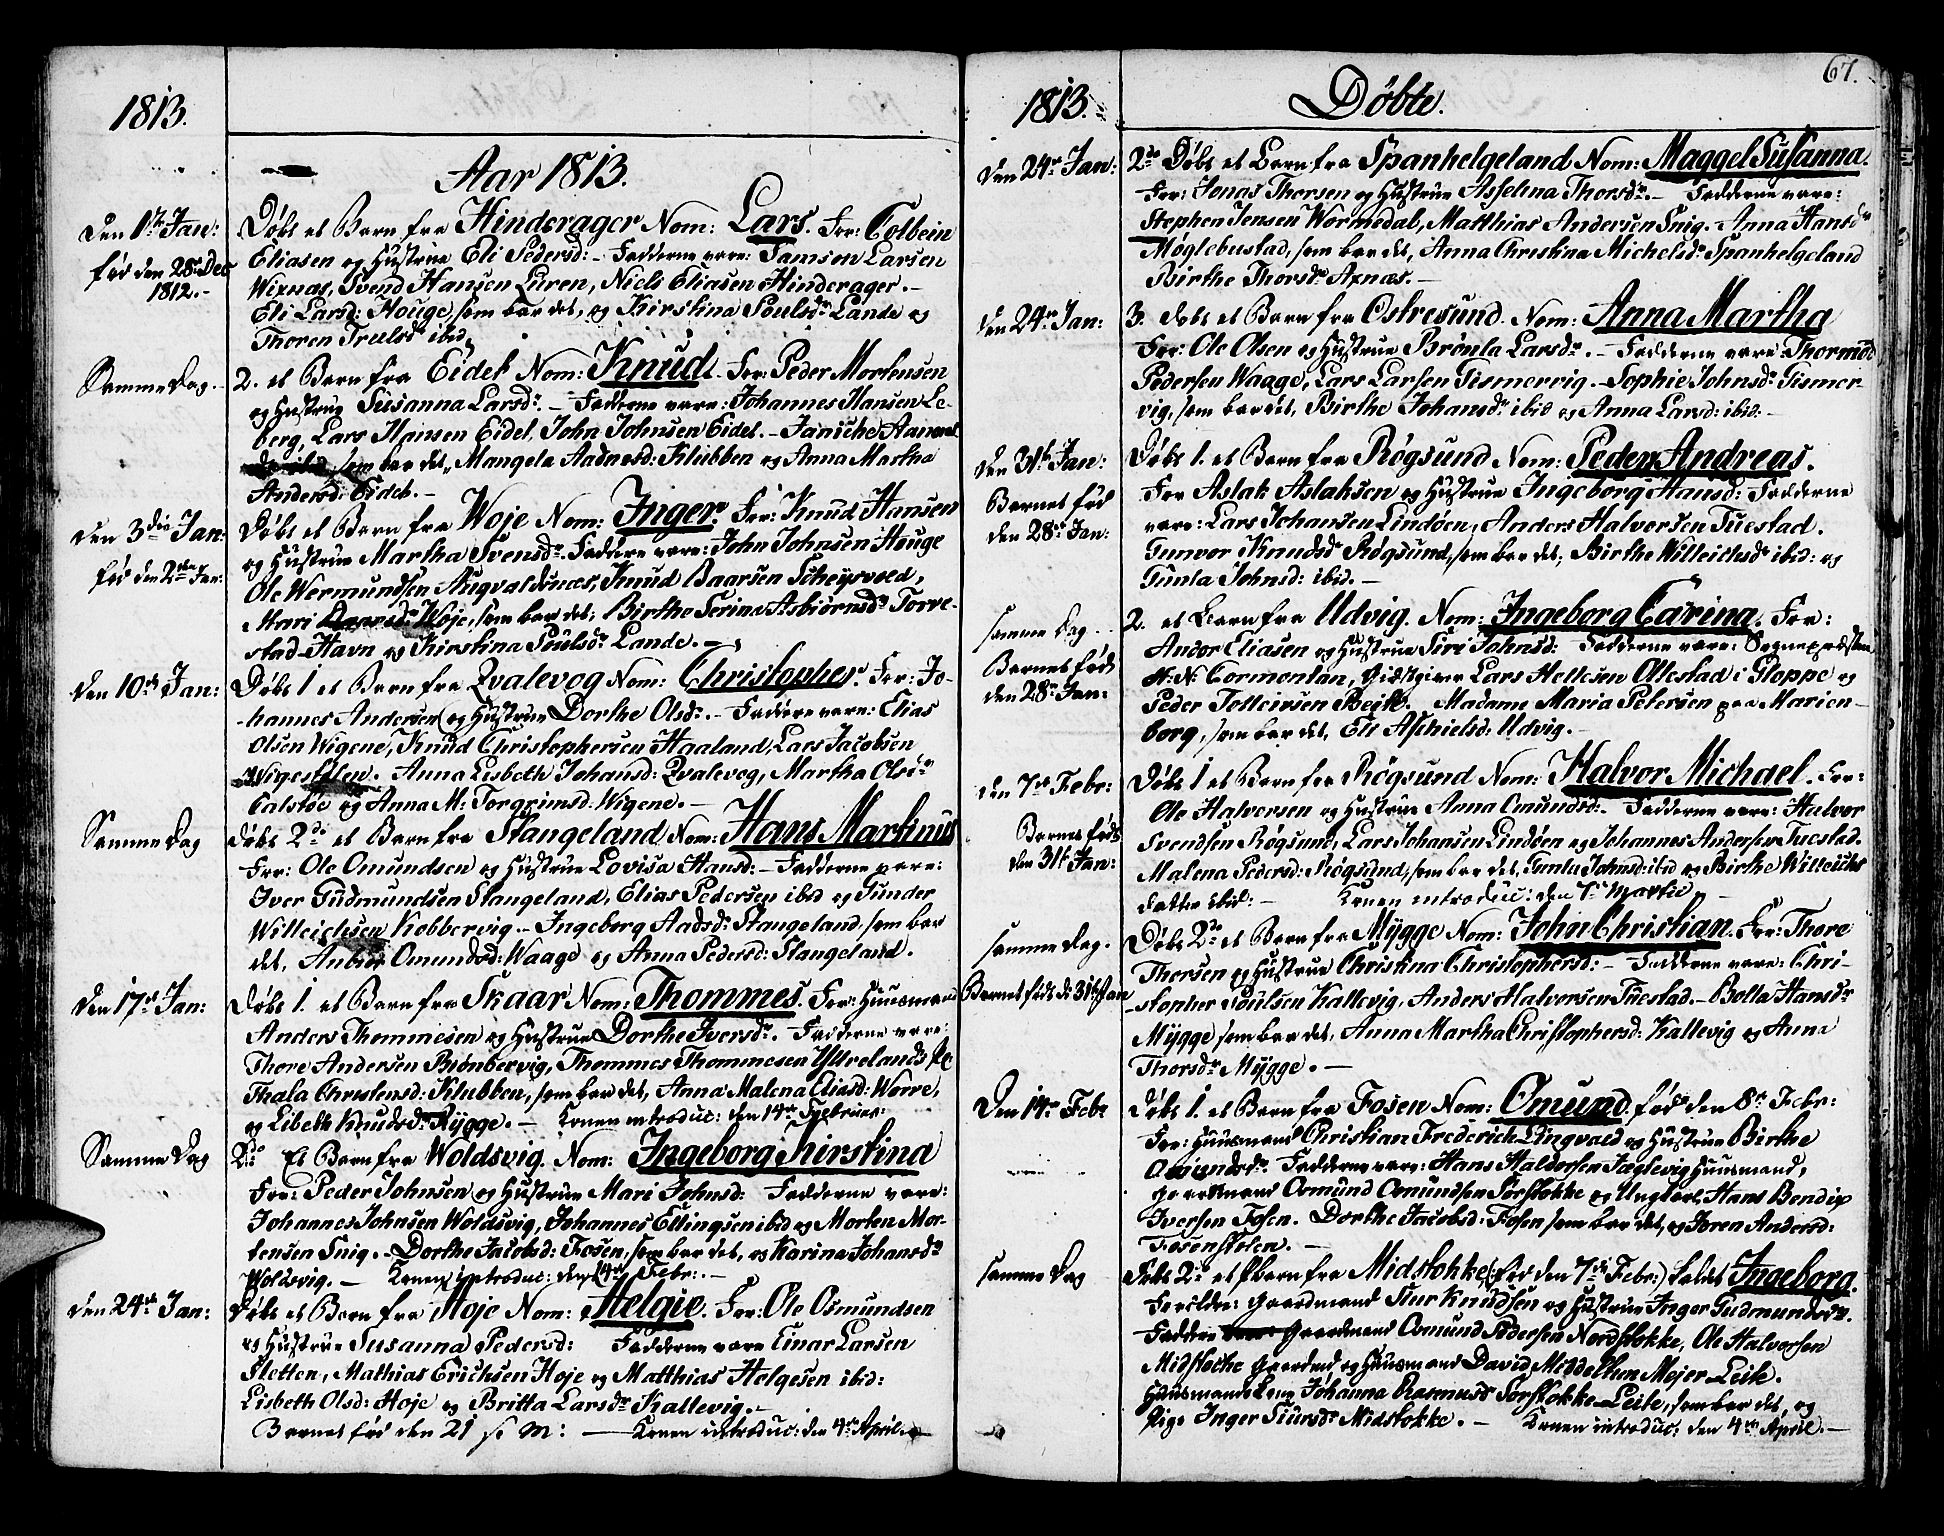 1813.
Aar 1813.
Den 1ste Jan:
fød den 28de Dec
1812.-
Døbt et Barn fra Hinderager Nom: Lars. For: Colbein
Eliasen og Hustrue Eli Pedersd:- Fadderne vare: Samson Larsen
Wixnæs, Svend Hansen Luren, Niels Eliasen Hinderager.-
Eli Larsd: Houge, som bar det, og Kirstina Poulsdr Lande og
Thoren Truelsdr ibid
Samme Dag.
2. et Barn fra Eidet Nom: Knud. For: Peder Mortensen
og Hustrue Susanna Larsdr.- Fadderne vare: Johannes Hansen Le-
berg, Lars Hansen Eidet, John Johnsen Eidet.- Janiche Aanens
som bar det, Mangela Aadnesd: Klubben og Anna Martha
Andersd: Eidet.-
Den 3die Jan:
fød den 2den Jan:
Døbt et Barn fra Woje Nom: Inger. For: Knud Hansen
og Hustrue Martha Svensdr. Faddere vare: John Johnsen Houge
Ole Wermundsen Augvaldsnæs, Knud Baarsen Scheysvold,
Mari Woje, som bar det, Birthe Serina Asbiørnsdr Torve-
stad-Havn og Kirstina Poulsdr Lande.-
Den 10de Jan:
Døbt 1 et Barn fra Qvalevog Nom: Christopher. For: Jo-
hannes Andersen og Hustrue Dorthe Olsdr.- Faddere vare: Elias
Olsen Wigene, Knud Christophersen Haaland, Lars Jacobsen
Wigestølen. Anna Lisbeth Johansd: Qvalevog, Martha Olsdr
Calstøe og Anna M: Torgrimsd: Wigene.-
Samme Dag
Døbt 2do et Barn fra Stangeland Nom: Hans Martinus
For: Ole Omundsen og Hustrue Lovisa Hansd:- Fadderne vare:
Iver Gudmundsen Stangeland, Elias Pedersen ibid og Gunder
Willeichsen Kobbervig.- Ingeborg Aadsdr Stangeland, som bar
det, Omundsd: Waage og Anna Pedersd: Stangeland.
Den 17de Jan:
Døbt 1. et Barn fra Skaar Nom: Thommes. For: Huusmand
Anders Thommesen og Hustrue Dorthe Iversdr. Fadderne vare:
Thore Andersen Biønbervig, Thommes Thommesen Ytrelands
Thala Christensd: Klubben, som bar det, Anna Malena Eliasd: Worre,
og Lisbeth Knudsdr Mygge.- Konen introduc: den 14de Februar:
Samme Dag
2do Et Barn fra Woldsvig. Nom: Ingeborg Kirstina
For: Peder Johnsen og Hustrue Mari Johnsd: Fadderne vare:
Johannes Johnsen Woldsvig, Johannes Ellingsen ibid og Morten Mor-
tensen Snig.- Dorthe Jacobsd: Fosen, som bar det, og Karina Johansdr
Woldsvig.- Konen introduc: den 14de Febr:-
Den 24de Jan:
Døbt et Barn fra Høje Nom: Helgie. For: Ole Osmundsen
og Hustrue Susanna Pedersd: Fadderne vare Einar Larsen
Sletten, Mathias Erichsen Høje og Matthias Helgesen ibid:
Lisbeth Olsd: Høje og Britta Larsdr Kallevig.-
Barnet fød den 21 s: M:- Konen introduc: den 4de April.-
1813.
Døbte.
67.
Den 24de Jan:
2do Døbt et Barn fra Spanhelgeland Nom: Maggel Susanna.
For: Jonas Thorsen og Hustrue Asselina Thorsdr.- Fadderne vare:
Stephen Jensen Wormedal, Matthias Andersen Snig. Anna Hansdr
Møglebustad, som bar det, Anna Christina Michelsdr Spanhelgeland
Birthe Thorsdr Axnæs.-
Den 24de Jan:
3. Døbt et Barn fra Ostresund. Nom: Anna Martha
For: Ole Olsen og Hustrue Brønla Larsdr.- Fadderne vare: Thormod
Pedersen Waage, Lars Larsen Gismervig.- Sophie Johnsdr Gismer-
vig, som bar det, Birthe Johansdr ibid og Anna Larsd: ibid:-
Den 31te Jan:
Barnet fød
den 28de Jan:
Døbt 1. et Barn fra Røgsund Nom: Peder Andreas.
For Aslak Aslaksen og Hustrue Ingeborg Hansd: Fadderne
vare: Lars Johansen Lindøen, Anders Halvorsen Tuestad.
Gunvor Knudsdr Røgsund, som bar det, Birthe Willeichsdr ibid: og
Gunla Johnsd: ibid.-
samme Dag..
Barnet født
den 28de Jan:
2. et Barn fra Udvig. Nom: Ingeborg Carina. For:
Andor Eliasen og Hustrue Siri Johnsd: Fadderne vare: Sognepræsten
H. N: Tormontan, Giæstgiver Lars Hettesen Ollestad i Gloppe og
Peder Totteirsen Bejte. Madame Maria Petersen paa Marien-
borg, som bar det, Eli Aschielsd: Udvig.-
Den 7de Febr:
Barnet fød
den 31te Jan:
Døbt 1 et Barn fra Røgsund Nom: Halvor Michael. For:
Ole Halvorsen og Hustrue Anna Omundsd:- Fadderne vare: Halvor
Svendsen Røgsund, Lars Johansen Lindøen og Johannes Andersen Tuestad.
Malena Pedersd: Røgsund, som bar det, Gunla Johnsd: ibid og Birthe Willeichs
datter ibid:- Konen introduc: den 7de Martii
samme Dag.
Barnet født d: 31te Jan
Døbt 2do et Barn fra Mygge Nom: John Christian. For: Thore
Thorsen og Hustrue Christina Christophersd:- Fadderne vare: Chri-
stopher Poulsen Kallevig, Anders Halvorsen Tuestad.- Bolla Hansdr
Mygge som bar det, Anna Martha Christophersd: Kallevig og Anna
Thorsdr Mygge.-
Den 14de Febr
Døbt 1. et Barn fra Fosen Nom: Omund fød den 8de Febr:
For: Huusmand Christian Frederich Lingvald og Hustrue Birthe
Omundsdr. Fadderne vare: Hans Haldorsen Sæglevig Huusmand,
Gaardmand Osmund Osmundsen Sørstokke og Ungkarl Hans Bendix
Iversen Fosen. Dorthe Jacobsd: Fosen som bar det, og Joren Andersd:
Fosenstølen.-
samme Dag
Døbt 2do et Barn fra Midstokke (fød den 7de Febr:) kaldt Ingeborg.
Forældre: Gaardmand Siur Knudsen og Hustrue Inger Gudmundsdr.
Faddere Gaardmand Osmund Pedersen Nordstokke, Ole Halvorsen
Midstocke Gaardmd og Huusmand David Middelthun Mejer-Leite.
Huusmands Kone Johanna Rasmusdr Sørstokke-Leite, som bar det, og
Pige Inger Siursdr Midstokke.- Konen introduc: den 4de April.-